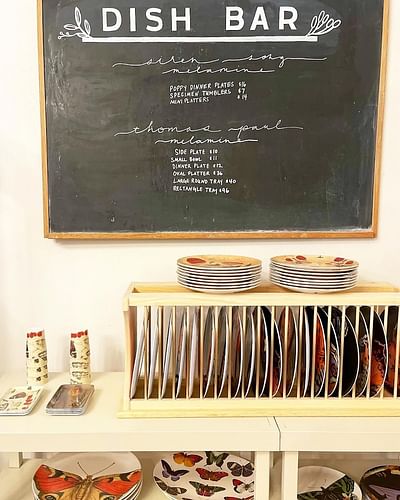 DISH BAR
siren song
melamine
POPPY DINNER PLATES $16
SPECIMEN TUMBLERS $7
MINI PLATTERS $14
thomas paul
melamine
SIDE PLATE $10
SMALL BOWL $11
DINNER PLATE $12
OVAL PLATTER $36
LARGE ROUND TRAY $40
RECTANGLE TRAY $46